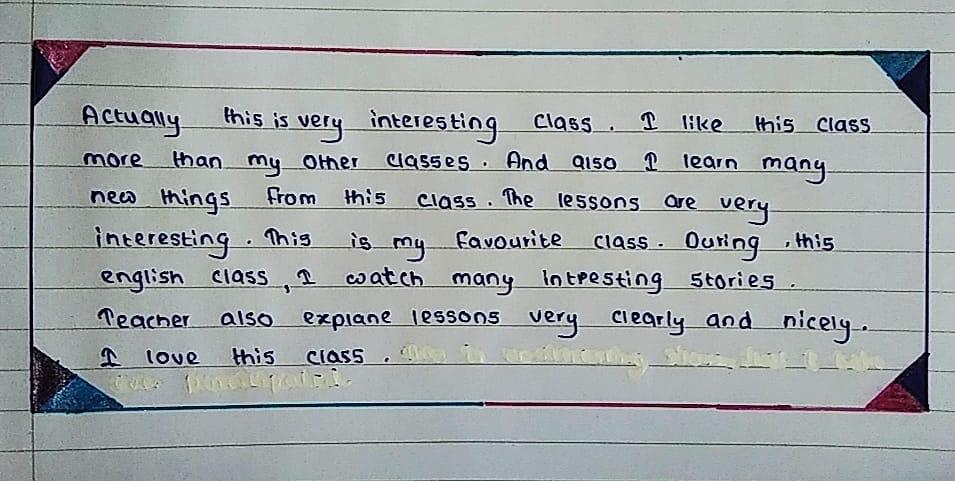 Actually this is very interesting class. I like this class
more than my other classes. And also I learn many
new things from this class. The lessons are very
interesting. This is my favourite class. During, this
english class, I watch many intresting stories.
Teacher also explane lessons very clearly and nicely.
I love this class.